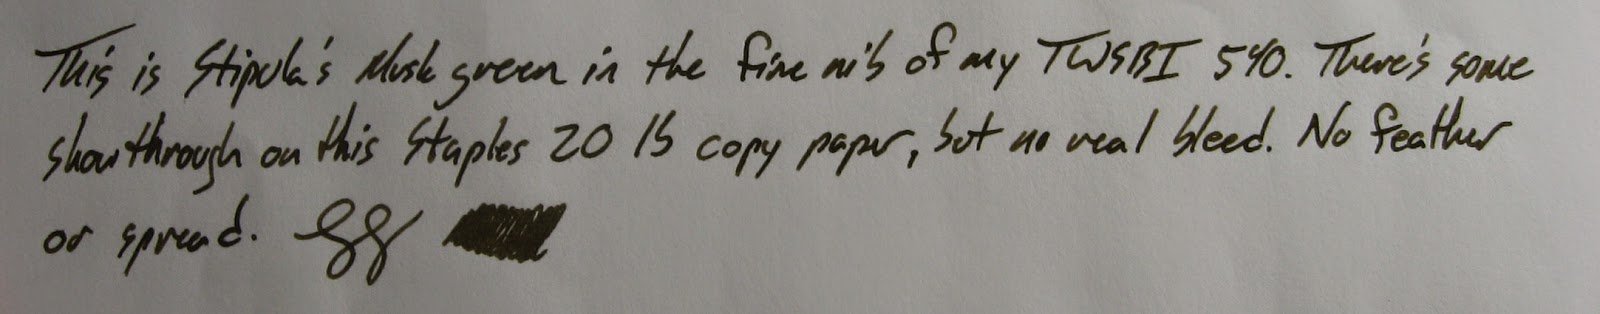 This is Stipula's Musk green in the fine nib of my TWSBI 540. There's some
showthrough on this Staples 20 lb copy paper, but no real bleed. No feather
or spread.